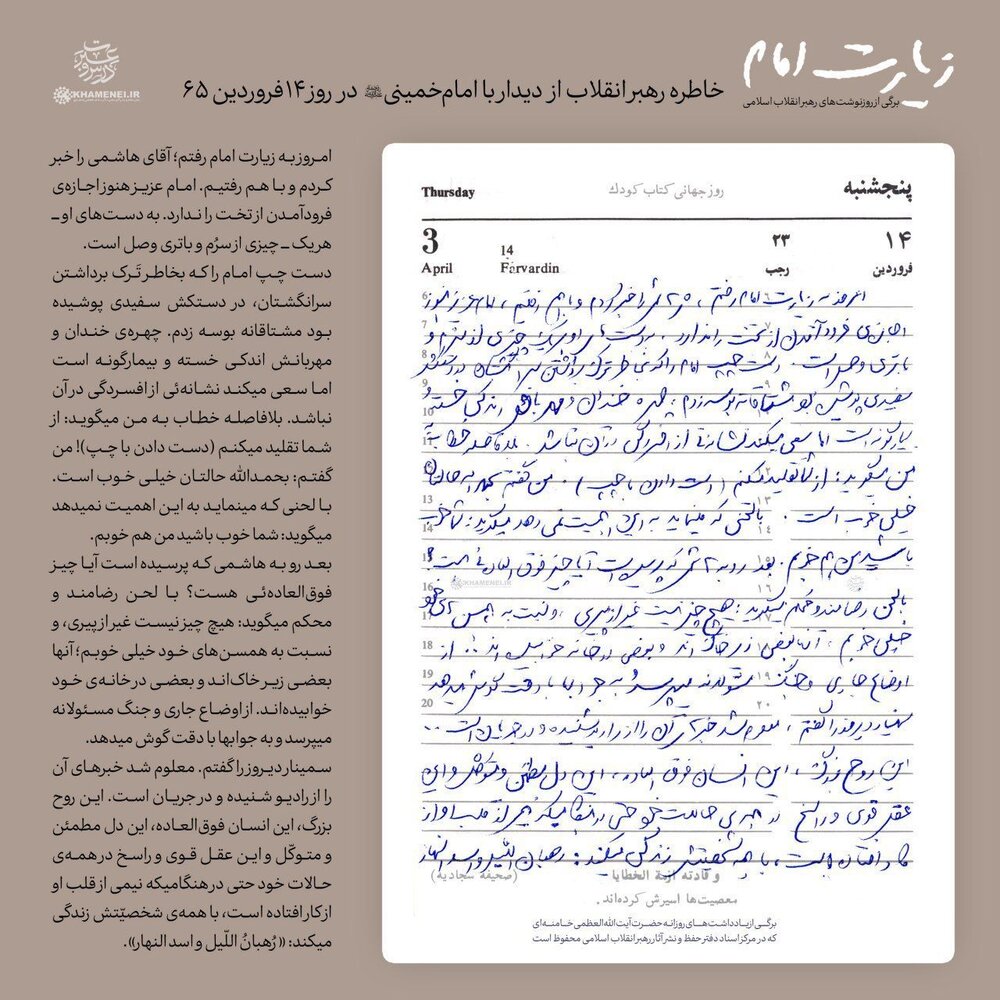 زیارت امام
برگی از روزنوشت‌های رهبر انقلاب اسلامی
خاطره رهبر انقلاب از دیدار با امام خمینی در روز ۱۴ فروردین ۶۵
درس و عبرت
KHAMENEI.IR
امروز به زیارت امام رفتم؛ آقای هاشمی را خبر
کردم و با هم رفتیم. امام عزیز هنوز اجازه‌ی
فرودآمدن از تخت را ندارد. به دست‌های او ـ
هریک ـ چیزی از سرُم و باتری وصل است.
دست چپ امام را که بخاطر تَرک برداشتن
سرانگشتان، در دستکش سفیدی پوشیده
بود مشتاقانه بوسه زدم. چهره‌ی خندان و
مهربانش اندکی خسته و بیمارگونه است
اما سعی میکند نشانه‌ئی از افسردگی در آن
نباشد. بلافاصله خطاب به من میگوید: از
شما تقلید میکنم (دست دادن با چپ)! من
گفتم: بحمدالله حالتان خیلی خوب است.
با لحنی که مینماید به این اهمیت نمیدهد
میگوید: شما خوب باشید من هم خوبم.
بعد رو به هاشمی که پرسیده است آیا چیز
فوق‌العاده‌ئی هست؟ با لحن رضامند و
محکم میگوید: هیچ چیز نیست غیر از پیری، و
نسبت به همسن‌های خود خیلی خوبیم؛ آنها
بعضی زیر خاک‌اند و بعضی در خانه‌ی خود
خوابیده‌اند. از اوضاع جاری و جنگ مسئولانه
میپرسد و به جوابها با دقت گوش میدهد.
سمینار دیروز را گفتم. معلوم شد خبرهای آن
را از رادیو شنیده و در جریان است. این روح
بزرگ، این انسان فوق‌العاده، این دل مطمئن
و متوکّل و این عقل قوی و راسخ در همه‌ی
حالات خود حتی در هنگامیکه نیمی از قلب او
از کار افتاده است، با همه‌ی شخصیّتش زندگی
میکند: «رُهبانُ اللّیل و اسد النهار».
پنجشنبه روز جهانی کتاب کودك Thursday
۱۴ ۲۳ 14 3
فروردین رجب Farvardin April
امروز به زیارت امام رفتم، هاشمی را خبر کردم و با هم رفتیم، امام عزیز هنوز
اجازه‌ی فرود آمدن از تخت را ندارد. به دست‌های او هریک چیزی از سرم و
باتری وصل است. دست چپ امام را که بخاطر ترک برداشتن سرانگشتان در دستکش
سفیدی پوشیده بود مشتاقانه بوسه زدم، چهره خندان و مهربانش اندکی خسته و
بیمارگونه است اما سعی میکند نشانه‌ئی از افسردگی در آن نباشد. بلافاصله خطاب به
من میگوید: از شما تقلید میکنم (دست دادن با چپ). من گفتم بحمد الله حالتان
خیلی خوب است. با لحنی که مینماید به این اهمیت نمی دهد میگوید: شما خوب
باشید من هم خوبم. بعد رو به هاشمی که پرسیده است آیا چیز فوق العاده‌ئی هست؟
با لحن رضامند و محکم میگوید: هیچ چیز نیست غیر از پیری، و نسبت به همسن های خود
خیلی خوبیم، آنها بعضی زیر خاک اند و بعضی در خانه خوابیده اند... از
اوضاع جاری و جنگ مسئولانه میپرسد و به جوابها با دقت گوش میدهد
سمینار دیروز را گفتم، معلوم شد خبرهای آن را از رادیو شنیده و در جریان است...
این روح بزرگ، این انسان فوق العاده، این دل مطمئن و متوکل و این
عقل قوی و راسخ در همه‌ی حالات خود حتی در هنگامیکه نیمی از قلب او از
کار افتاده است، با همه شخصیتش زندگی میکند: رهبان اللیل و اسد النهار
و قادته أزمة الخطایا (صحیفهٔ سجادیه)
معصیت‌ها اسیرش کرده‌اند.
6
7
8
9
10
11
13
14
15
16
17
18
19
20
KHAMENEI.IR
برگی از یادداشت‌های روزانه حضرت آیت‌الله‌العظمی خامنه‌ای
که در مرکز اسناد دفتر حفظ و نشر آثار رهبر انقلاب اسلامی محفوظ است